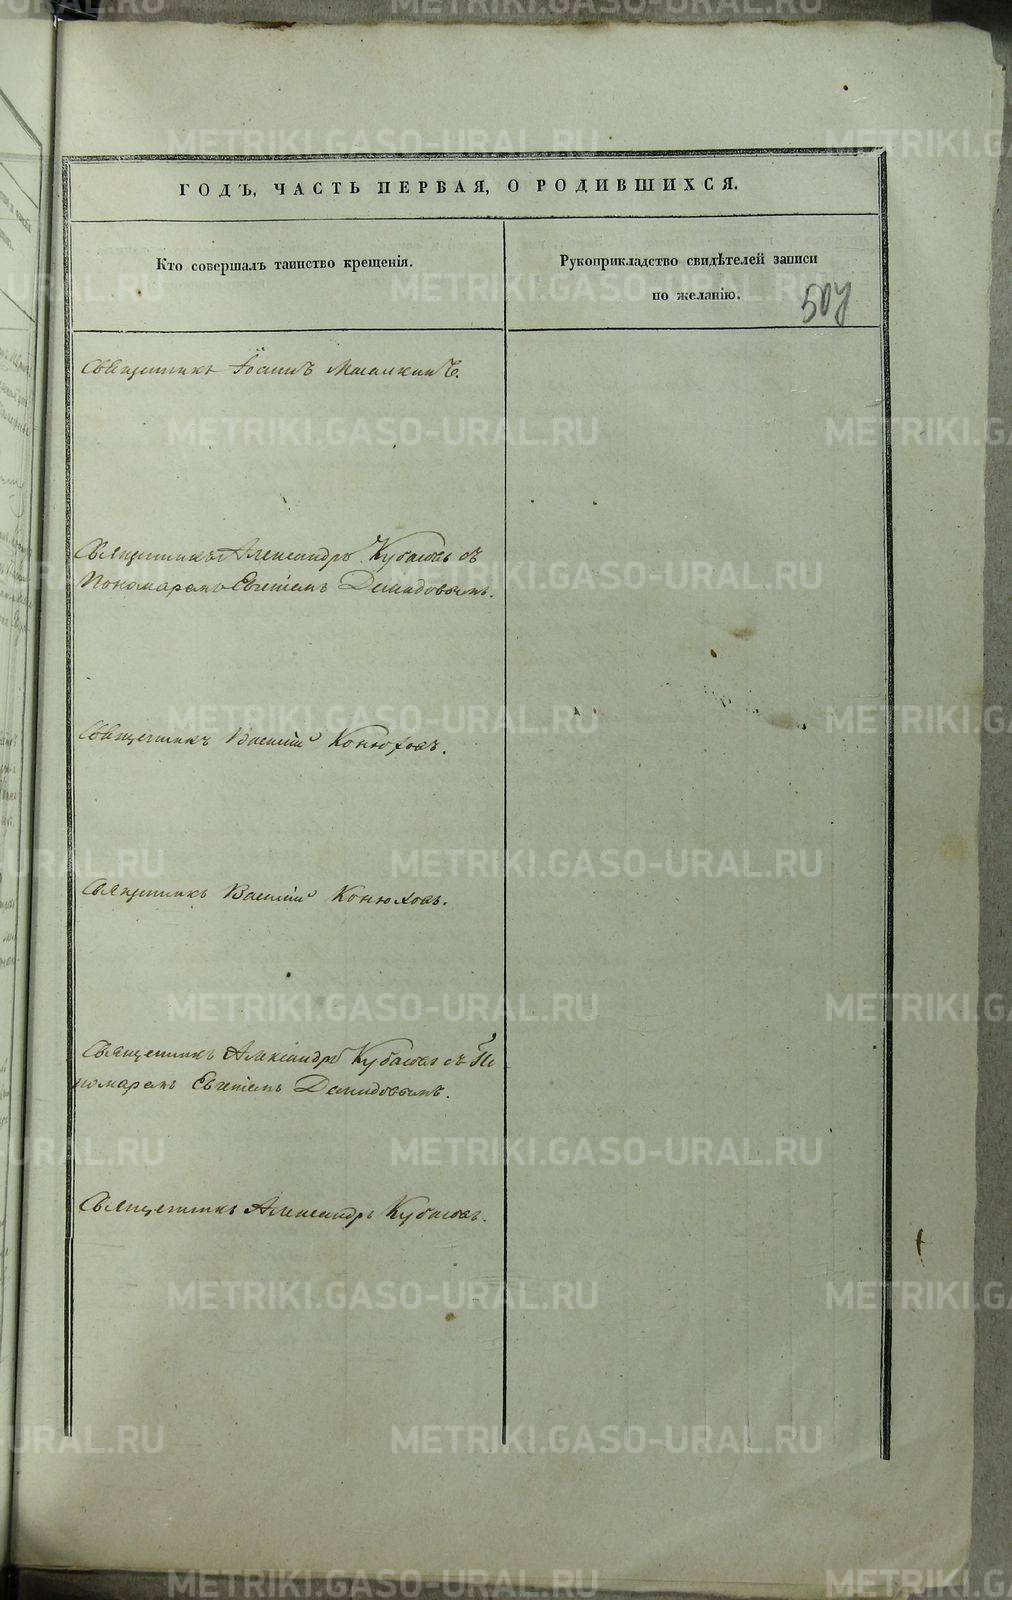 ГОДЪ, ЧАСТЬ ПЕРВАЯ, О РОДИВШИХСЯ.
Кто совершалъ таинство крещенія.
Рукоприкладство свидѣтелей записи
по желанію.
507
Священникъ Іоаннъ
Священникъ Александръ Кубасовъ съ
Пономаремъ Евгеніемъ Демидовымъ.
Священникъ Василій Конюховъ.
Священникъ Василій Конюховъ.
Священникъ Александръ Кубасовъ съ По
номаремъ Евгеніемъ Демидовымъ.
Священникъ Александръ Кубасовъ.
METRIKI.GASO-URAL.RU